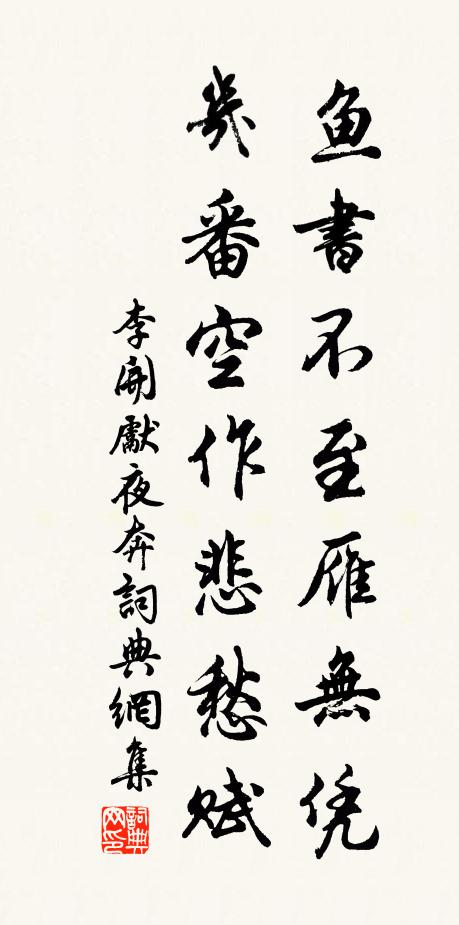 魚書不至雁無凭
幾番空作悲愁賦
李開獻夜奔詞典網集
詞典網印